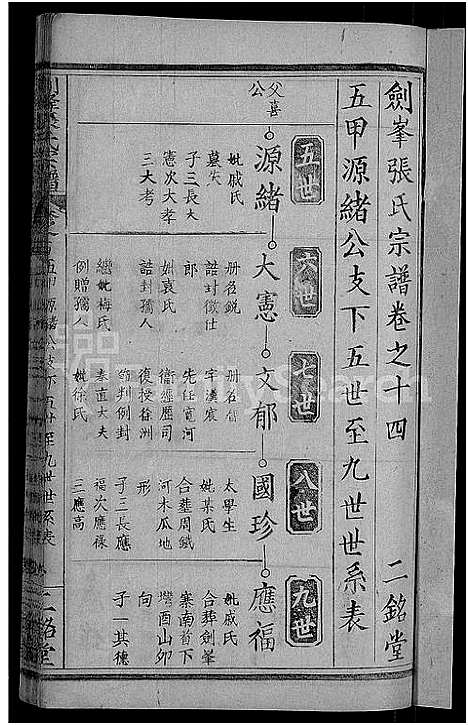 劍峯張氏宗譜卷之十四
二銘堂
五甲源緒公支下五世至九世世系表
五世
六世
七世
八世
九世
父喜公
源緒
大憲
文郁
國珍
應福
妣戚氏
墓失
子三長大
憲次大孝
三大考
册名銳
誥封徵仕
郎
妣袁氏
誥封孺人
繼妣梅氏
例贈孺人
册名
字漢宸
先任寬河
衞經歷司
復授徐洲
節判例封
奉直大夫
妣徐氏
太學生
妣某氏
合塟周鐵
河木瓜地
形
子三長應
福次應祿
三應高
妣戚氏
合葬劍峯
寨南首下
灣酉山卯
向
子一其德
五甲源緒公支下五世至九世世系表
二銘堂